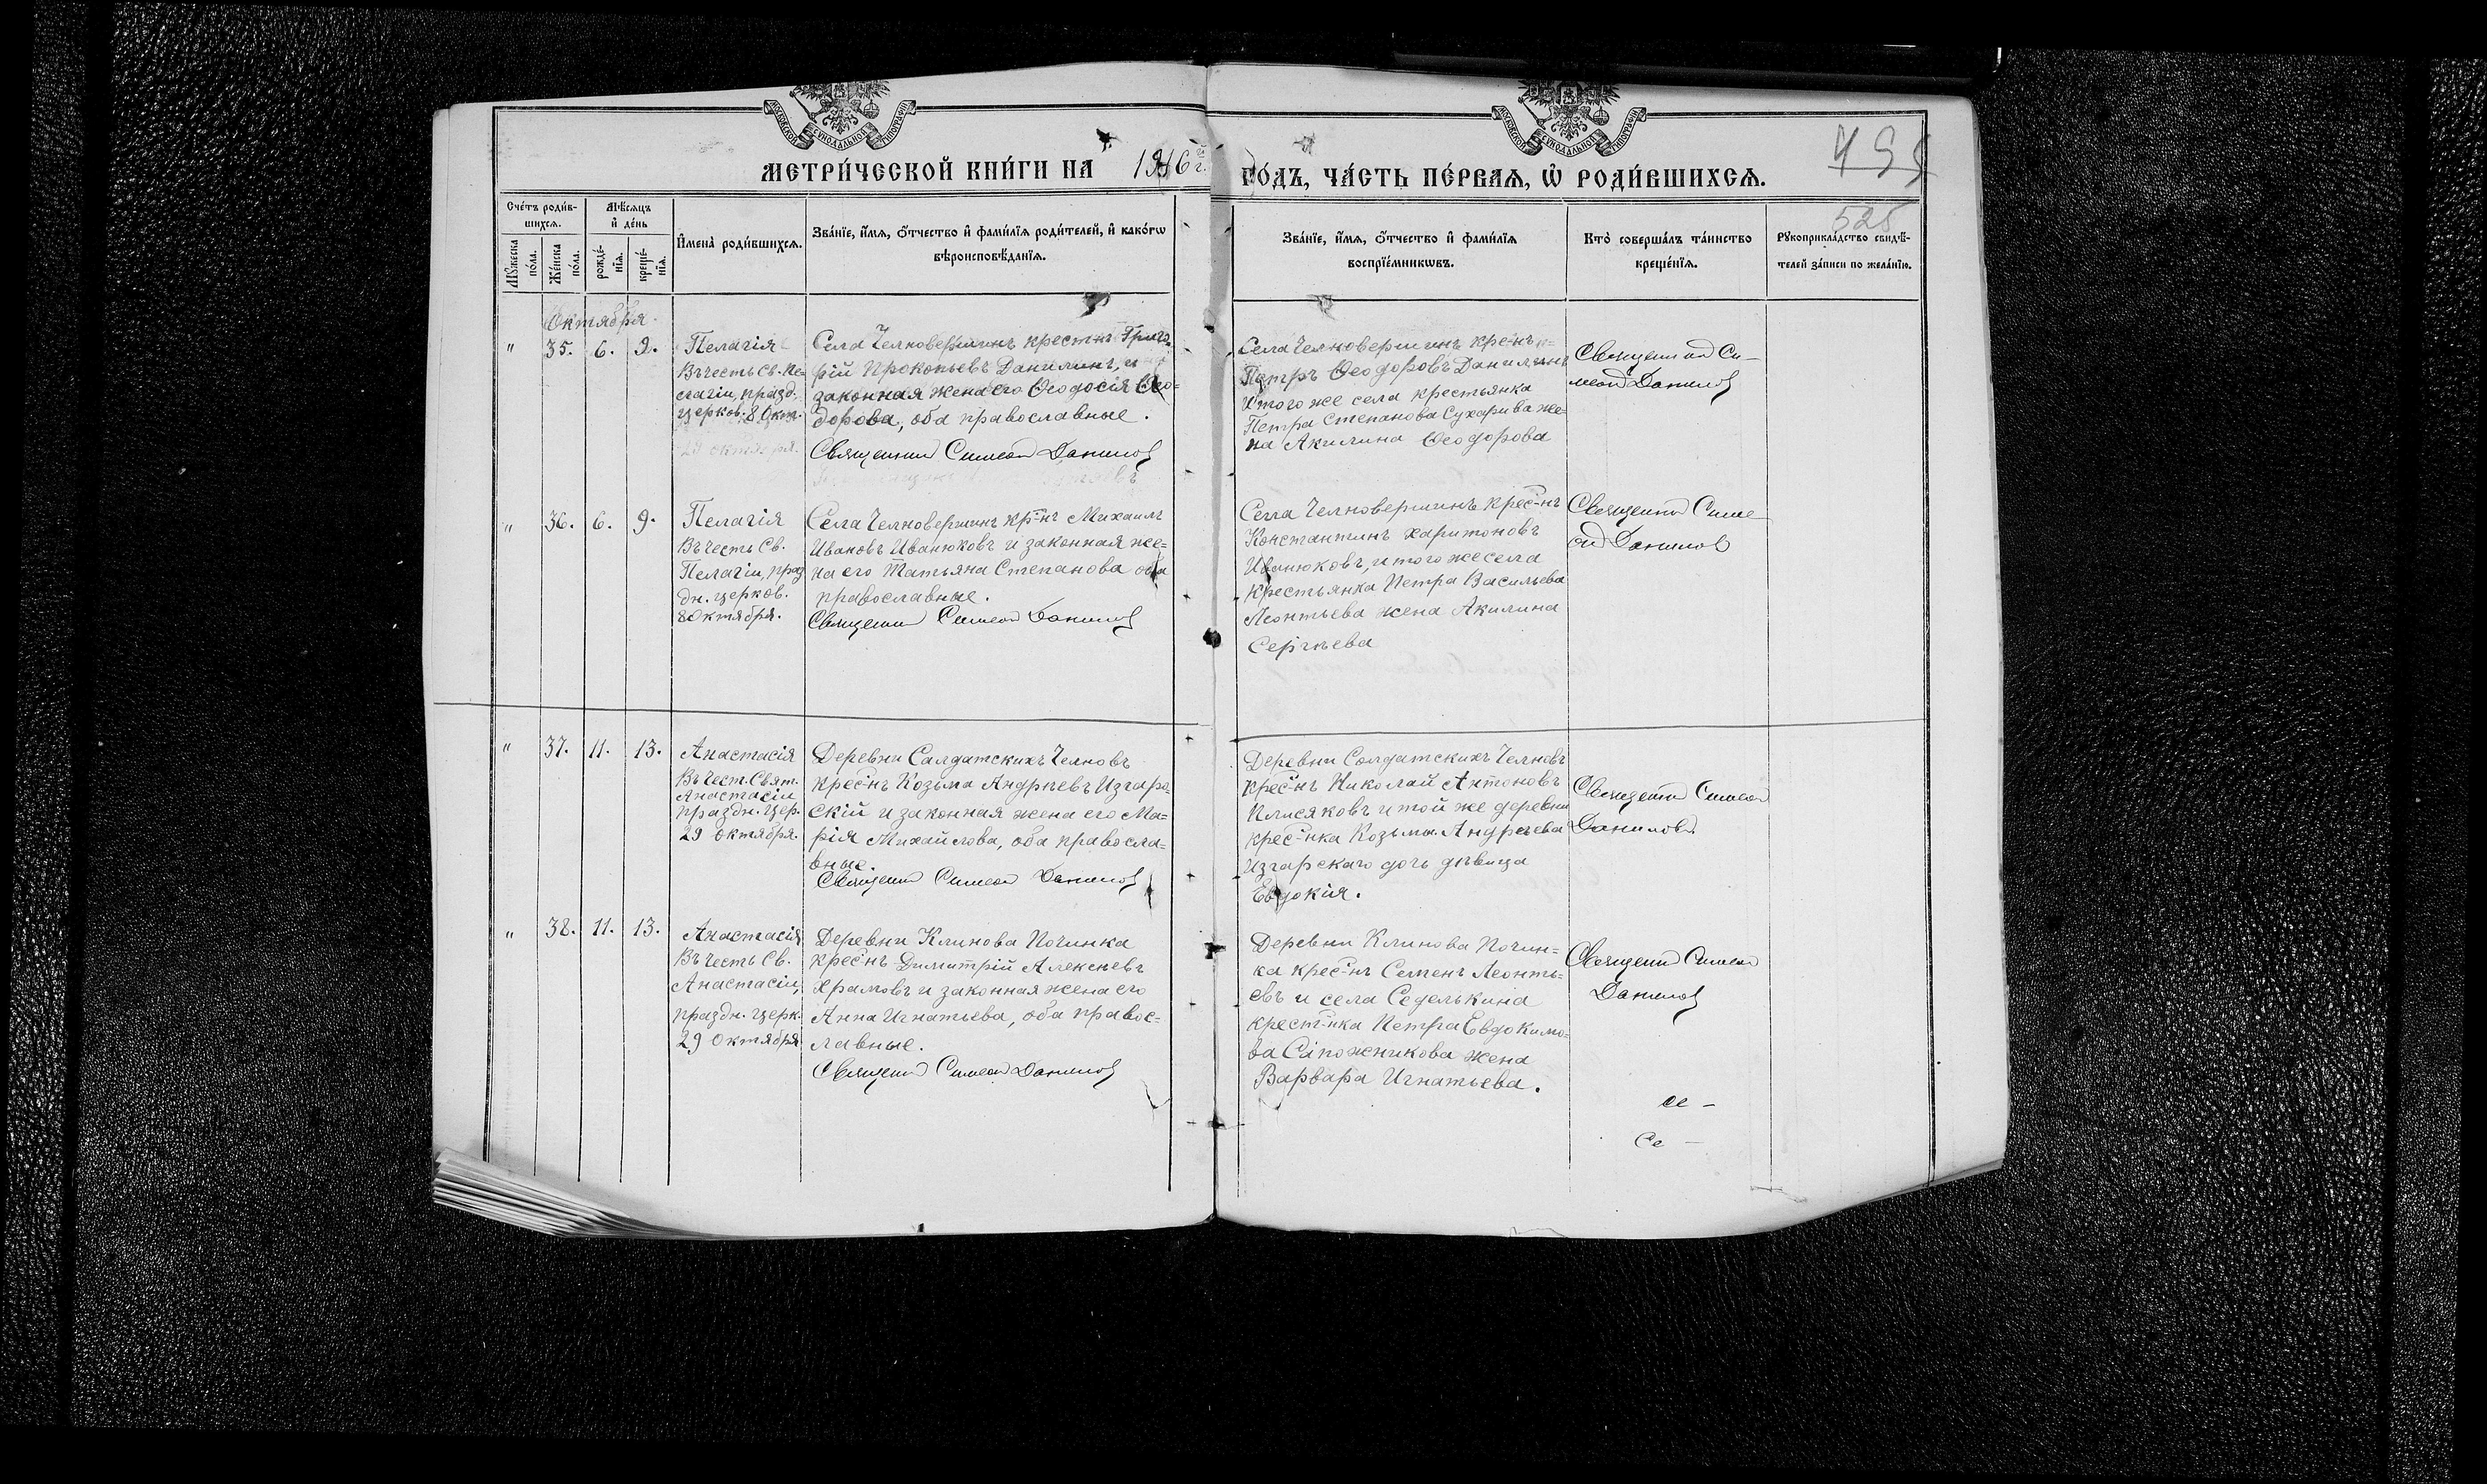 МЕТРИ́ЧЕСКОЙ КНИ́ГИ НА 1916 г.
ГО́ДЪ, ЧА́СТЬ ПЕ́РВАЯ, Ѡ҆ РОДИ́ВШИХСЯ.
МОСКОВСКОЙ СѴНОДАЛЬНОЙ ТИПОГРАФІИ
МОСКОВСКОЙ СѴНОДАЛЬНОЙ ТИПОГРАФІИ
495
525
Сче́тъ роди́в-
шихся.
Мѣ́сяцъ
и҆ де́нь
Мꙋ́жеска
по́ла.
Же́нска
по́ла.
рожде́-
нїя.
креще́-
нїя.
И҆мена̀ роди́вшихся.
Зва́нїе, и҆́мя, ѻ҆́тчество и҆ фами́лїя роди́телей, и҆ како́гѡ
вѣроисповѣ́данїя.
Зва́нїе, и҆́мя, ѻ҆́тчество и҆ фами́лїя
воспрїе́мникѡвъ.
Кто̀ соверша́лъ та́инство
креще́нїя.
Рꙋкоприкла́дство свидѣ́-
телей за́писи по жела́нїю.
Октября.
" 35. 6. 9.
Пелагія
Въ честь Св. Пе-
лагіи, празд.
церков. 8 Окт.
29 октября.
Села Челновершинъ крестнъ Григо-
рій Прокопьевъ Данилинъ, и
законная жена его Ѳеодосія Ѳео-
дорова, оба православные.
Священник Симеон Данилов
Села Челновершинъ кре-нъ
Петръ Ѳеодоровъ Данилинъ
и того же села крестьянка
Петра Степанова Сухарива же-
на Акилина Ѳеодорова
Священник Си-
меон Данилов
" 36. 6. 9.
Пелагія
Въ честь Св.
Пелагіи, праз
дн. церков.
8 Октября.
Села Челновершинъ кр-нъ Михаилъ
Ивановъ Иванюковъ и законная же-
на его Татьяна Степанова оба
православные.
Священник Симеон Данилов
Села Челновершинъ крес-нъ
Константинъ Харитоновъ
Иванюковъ, и того же села
крестьянка Петра Васильева
Леонтьева жена Акилина
Сергѣева
Священник Симе
он Данилов
" 37. 11. 13.
Анастасія
Въ Чест. Свят.
Анастасіи
праздн. цер.
29 Октября.
Деревни Салдатскихъ Челновъ
крес-нъ Козьма Андрѣевъ Изгар-
скій и законная жена его Ма-
рія Михайлова, оба правосла-
вные.
Священник Симеон Данилов
Деревни Солдатскихъ Челновъ
крес-нъ Николай Антоновъ
Плисяковъ и той же деревни
крес-нка Козьмы Андрѣева
Изгарскаго дочь дѣвица
Евдокія.
Священник Симеон
Данилов
" 38. 11. 13.
Анастасія
Въ честь Св.
Анастасіи,
праздн. церк.
29 Октября
Деревни Клинова Починка
крес-нъ Димитрій Алексѣевъ
Храмовъ и законная жена его
Анна Игнатьева, оба правос-
лавные.
Священник Симеон Данилов
Деревни Клинова Почин-
ка крес-нъ Семенъ Леонть-
евъ и села Седелькина
крест-нка Петра Евдокимо-
ва Сапожникова жена
Варвара Игнатьева.
Священник Симеон
Данилов